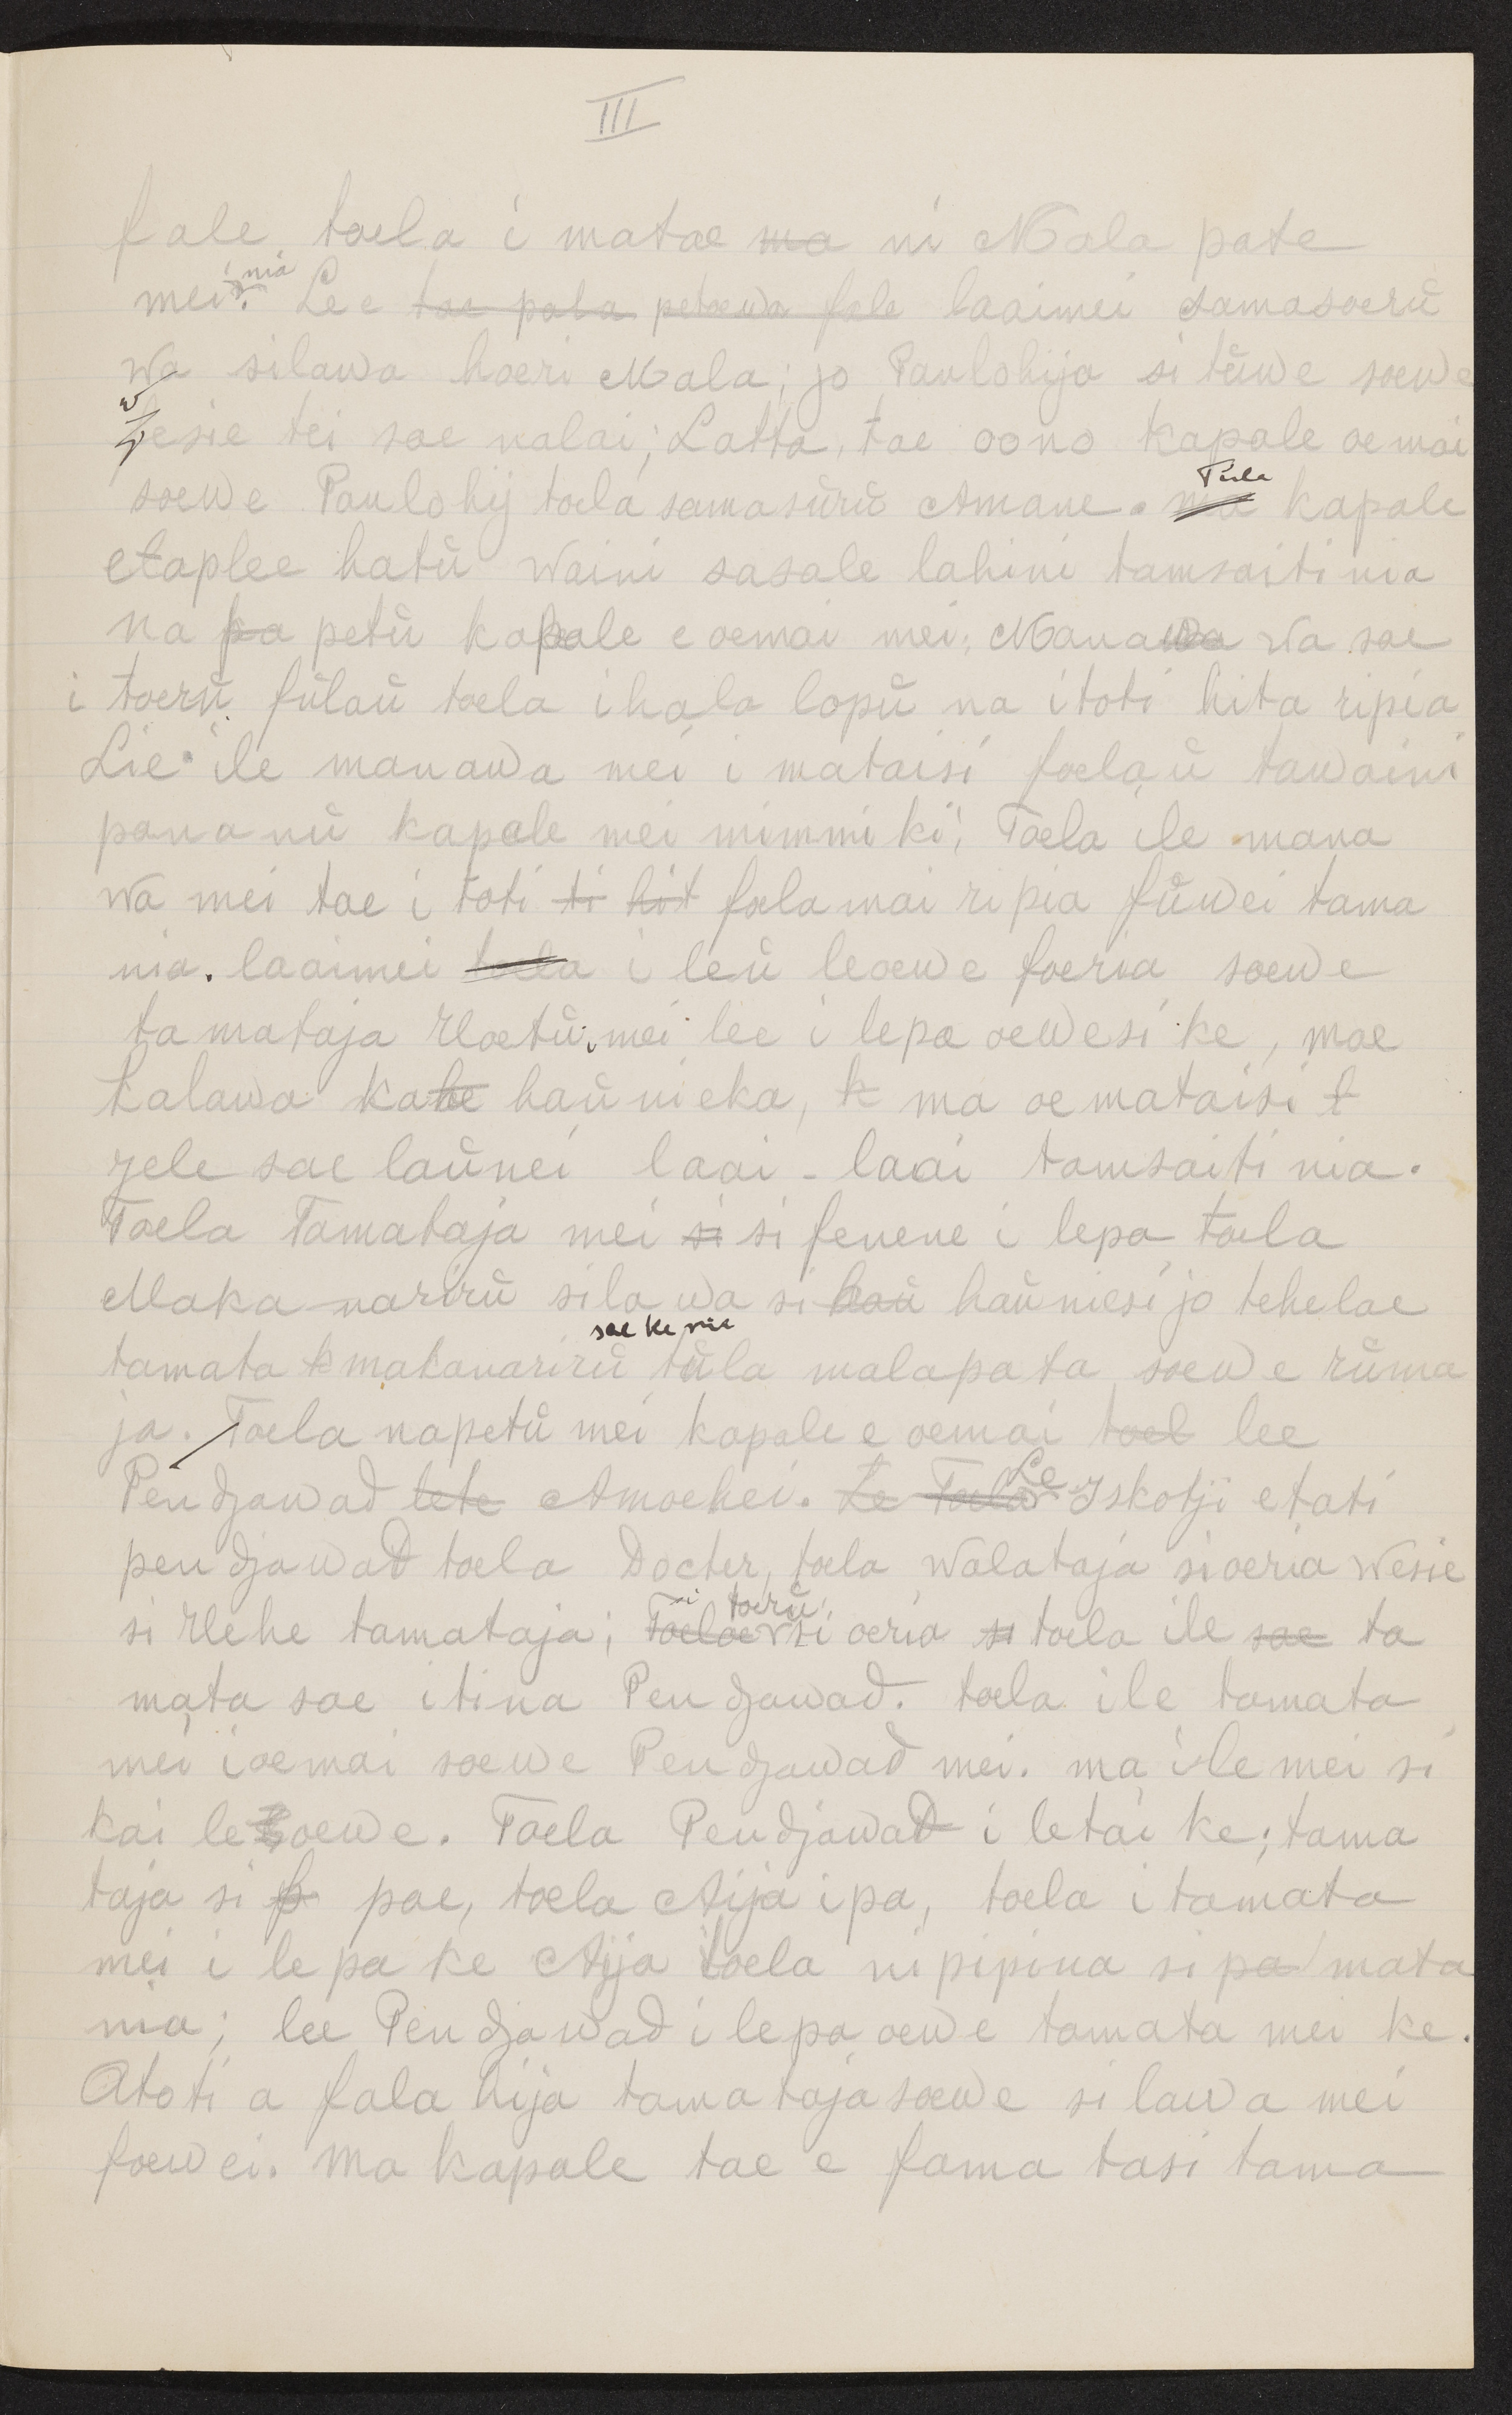 III
fale toela i matae ma ni Mala pate
mei i nia. Lee tae pala petoewa fale laaimei samasoerü
wa silawa hoeri Mala; jo Paulohija si tüwe soewe
wesie tei sae nalai; Latta, tae oono kapale oemai
soewe Paulohij toela samasürü Amane. ma Tula kapale
etaplee hatü waini sasale lahini tamsaitinia
na pa petü kapale e oemai mei; Manawa wa sae
i toerü fülaü toela ihala lopü na itoti hita ripia
Lie ile manawa mei i mataisi foelaü tawaini
pananü kapale mei mimmiki; Toela ile mana
wa mei tae i toti ti hit foelamai ripia füwei tama
nia. laaimei toela i leü leoewe foeria soewe
tamataja rloetü mei lee i lepa oewesi ke, mae
kalawa kahe haünieka, k ma oemataisi t
rele sae laünei laai-laai tamsaiti nia.
Toela Tamataja mei si si fenene i lepa toela
Makanarirü silawa si haü haüniesi jo tehelae
tamata k makanarirü sae ke nia tüla malapata soewe rüma
ja. Toela napetü mei kapale e oemai toel lee
Pendjawad lete Amoehei. Le Toela Le Iskotji etati
pendjawad toela Docter, toela walataja si oeria wesie
si rlehe tamataja; Toelae si toerü si oeria si toela ile sae ta
mata sae itina Pendjawad. toela ile tamata
mei ioemai soewe Pendjawad mei. ma ile mei si
kai lesoewe. Toela Pendjawad i letai ke; tama
taja si p pae, toela Aija ipa, toela i tamata
mei i lepa ke Aija toela ni pipina si pa mata
nia; lee Pendjawad i lepa oewe tamata mei ke.
Atoti a fala hija tamatajasoewe silawa mei
foewei. Ma kapale tae e fama tasi tama